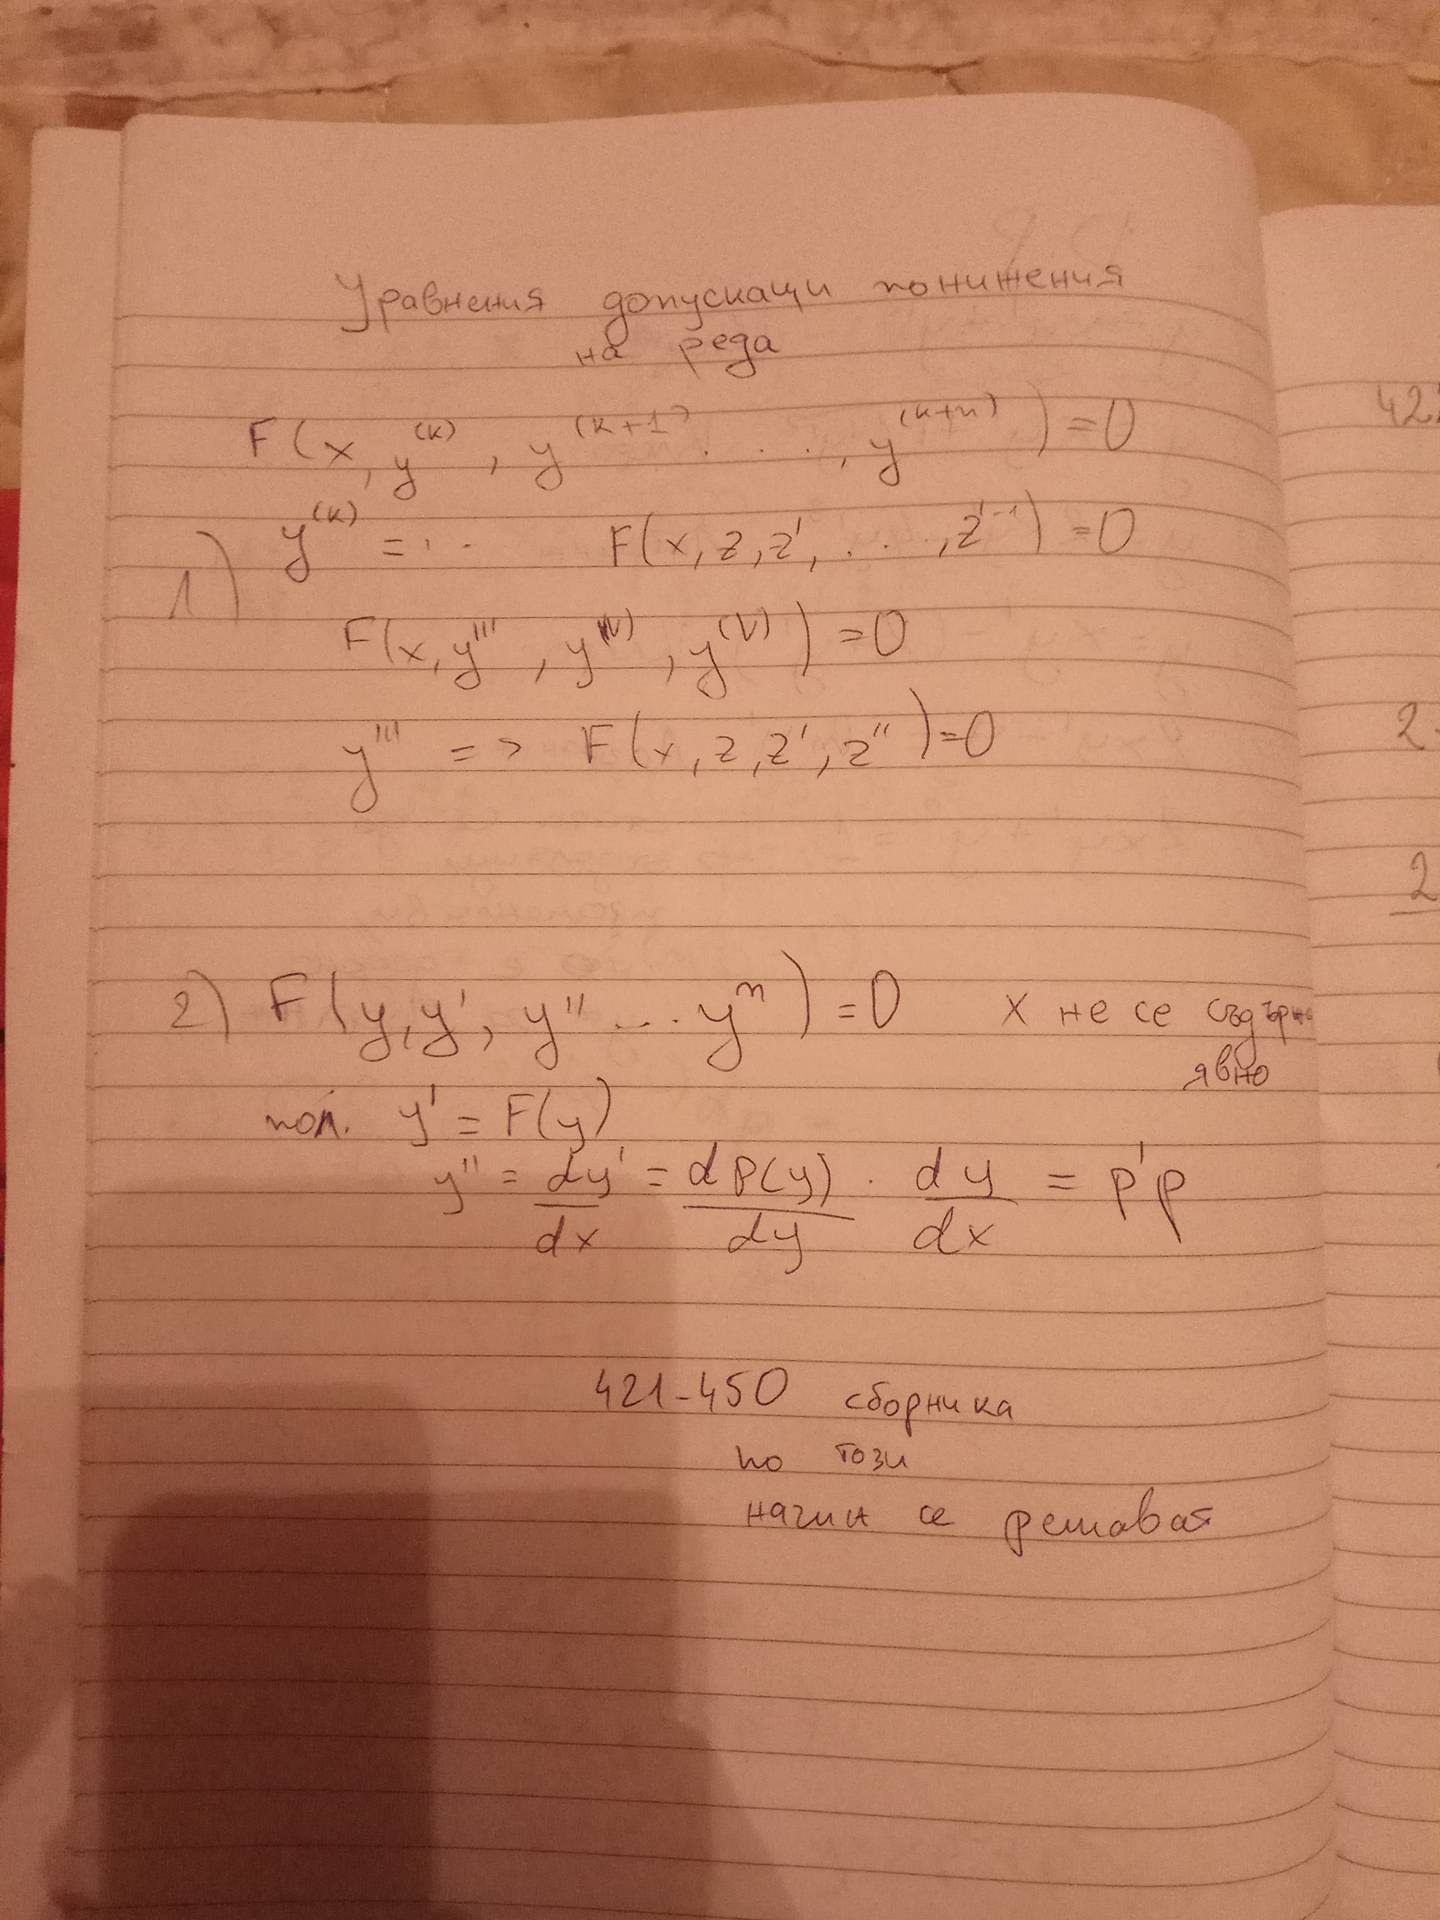 Уравнения допускащи понижения
на реда
F(x, y^(k), y^(k+1) . . . , y^(k+n)) = 0
1) y^(k) = . . . F(x, z, z', . . . , z'^-1) = 0
F(x, y''', y^(IV), y^(V)) = 0
y''' => F(x, z, z', z'') = 0
2) F(y, y', y'' ... y^n) = 0 x не се съдържа
явно
пол. y' = F(y)
y'' = dy'/dx = dP(y)/dy · dy/dx = p'p
421-450 сборника
по този
начин се решават
422
2
2